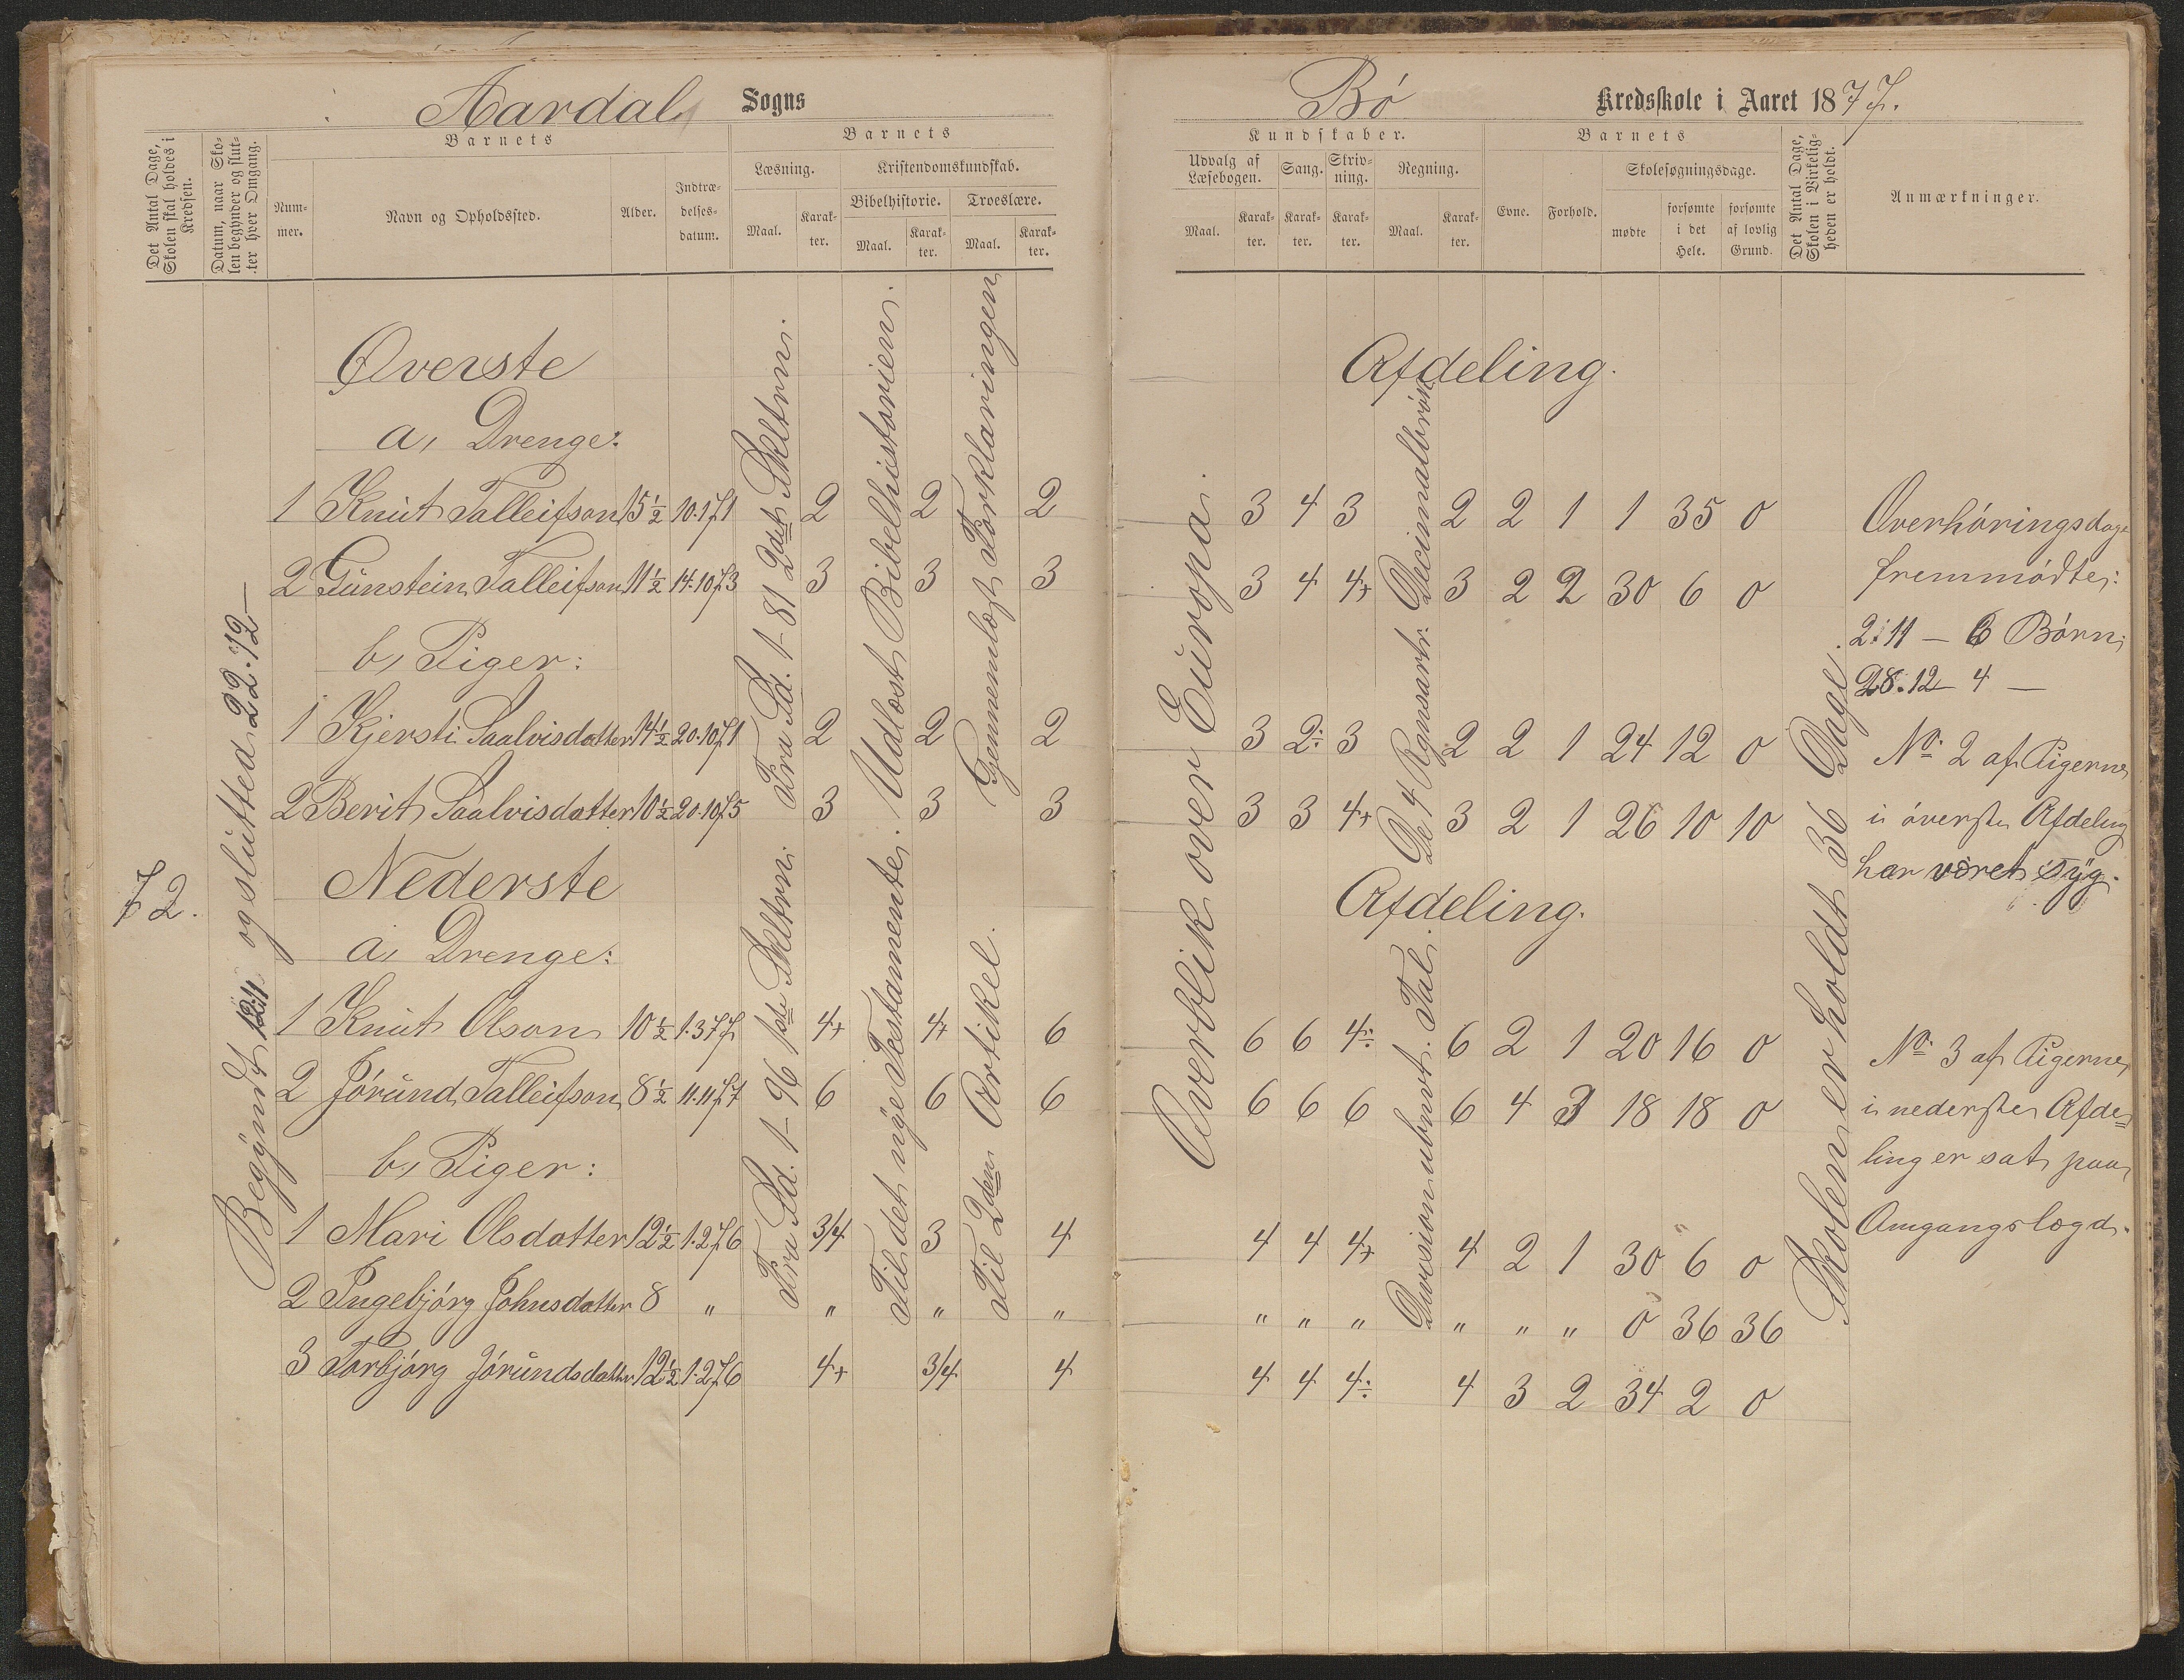 Aardal Sogns
Bö Kredsskole i Aaret 1877.
Det Antal Dage, Skolen skal holdes i Kredsen.
Datum, naar Skolen begynder og slutter hver Omgang.
Barnets
Nummer.
Navn og Opholdssted.
Alder.
Indtrædelsesdatum.
Barnets
Læsning.
Maal.
Karakter.
Kristendomskundskab.
Bibelhistorie.
Maal.
Karakter.
Troeslære.
Maal.
Karakter.
Kundskaber.
Udvalg af Læsebogen.
Maal.
Karakter.
Sang.
Karakter.
Skrivning.
Karakter.
Regning.
Maal.
Karakter.
Barnets
Evne.
Forhold.
Skolesøgningsdage.
mødte
forsømte i det Hele.
forsømte af lovlig Grund.
Det Antal Dage, Skolen i Virkeligheden er holdt.
Anmærkninger.
72.
Begÿndt 12.11 og sluttet 22.12
Øverste Afdeling.
a, Drenge:
1 Knut Talleifson 15½ 10.1.71 2 2 2 3 4 3 2 2 1 1 35 0
2 Gunstein Talleifson 11½ 14.10.73 3 3 3 3 4 4+ 3 2 2 30 6 0
b, Piger:
1 Kjersti Saalvisdatter 14½ 20.10.71 2 2 2 3 2÷ 3 2 2 1 24 12 0
2 Berit Saalvisdatter 10½ 20.10.75 3 3 3 3 3 4+ 3 2 1 26 10 10
Nederste Afdeling.
a, Drenge:
1 Knut Olson 10½ 1.3.77 4+ 4+ 6 6 6 4÷ 6 2 1 20 16 0
2 Jörund Talleifson 8½ 11.11.77 6 6 6 6 6 6 6 4 3 18 18 0
b, Piger:
1 Mari Olsdatter 12½ 1.2.76 3/4 3 4 4 4 4+ 4 2 1 30 6 0
2 Ingebjörg Johnsdatter 8 " " " " " " " " " " 0 36 36
3 Torbjörg Jörundsdatter 12½ 1.2.76 4+ 3/4 4 4 4 4÷ 4 3 2 34 2 0
Fra Sd. 1-81 2det Skoltrin.
Udlæst Bibelhistorien.
Gjennemlæst Forklaringen
Fra Sd. 1-96 1ste Skoltrin.
Til det nÿe Testamente.
Til 2den Artikel.
Overblik over Europa.
De 4 Rgnsartr. Decimalbrøk
Division ubnvt. Tal.
Skolen er holdt 36 Dage.
Overhöringsdage
fremmödte:
2.11 — 6 Börn
28.12 — 4 —
No. 2 af Pigerne
i överste Afdeling
har været sÿg.
No. 3 af Pigerne
i nederste Afde=
ling er sat paa
Omgangslægd.